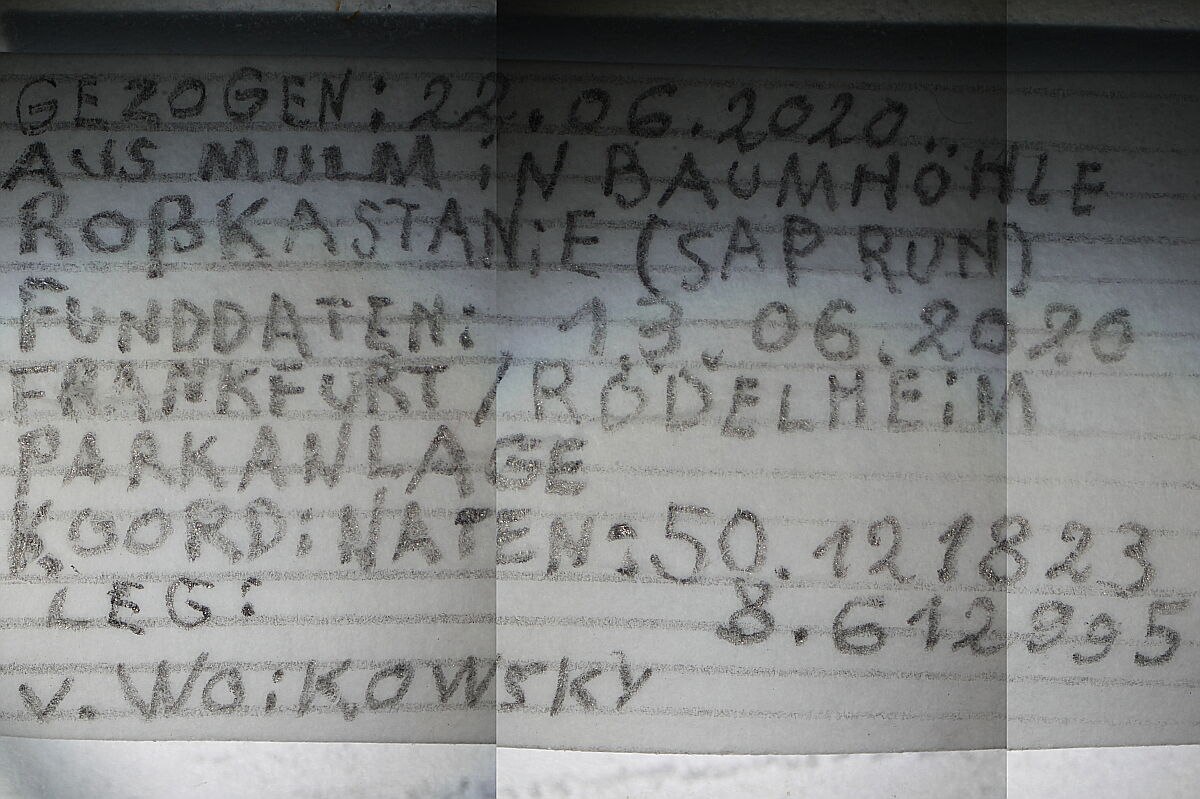 GEZOGEN: 22.06.2020
AUS MULM iN BAUMHÖHLE
ROßKASTANiE (SAP RUN)
FUNDDATEN: 13.06.2020
FRANKFURT / RÖDELHEiM
PARKANLAGE
KOORDiNATEN: 50.121823
LEG: 8.612995
v. WOiKOWSKY